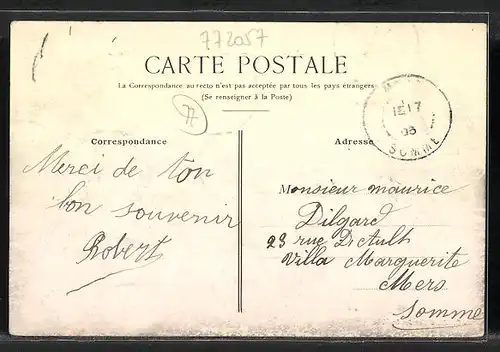 772057
CARTE POSTALE
La Correspondance au recto n'est pas acceptée par tous les pays étrangers
(Se renseigner à la Poste)
77
Correspondance
Merci de ton
bon souvenir
Robert
Adresse
17
06
SOMME
Monsieur maurice
Dilgard
23 rue D'Ault
Villa Marguerite
Mers
Somme